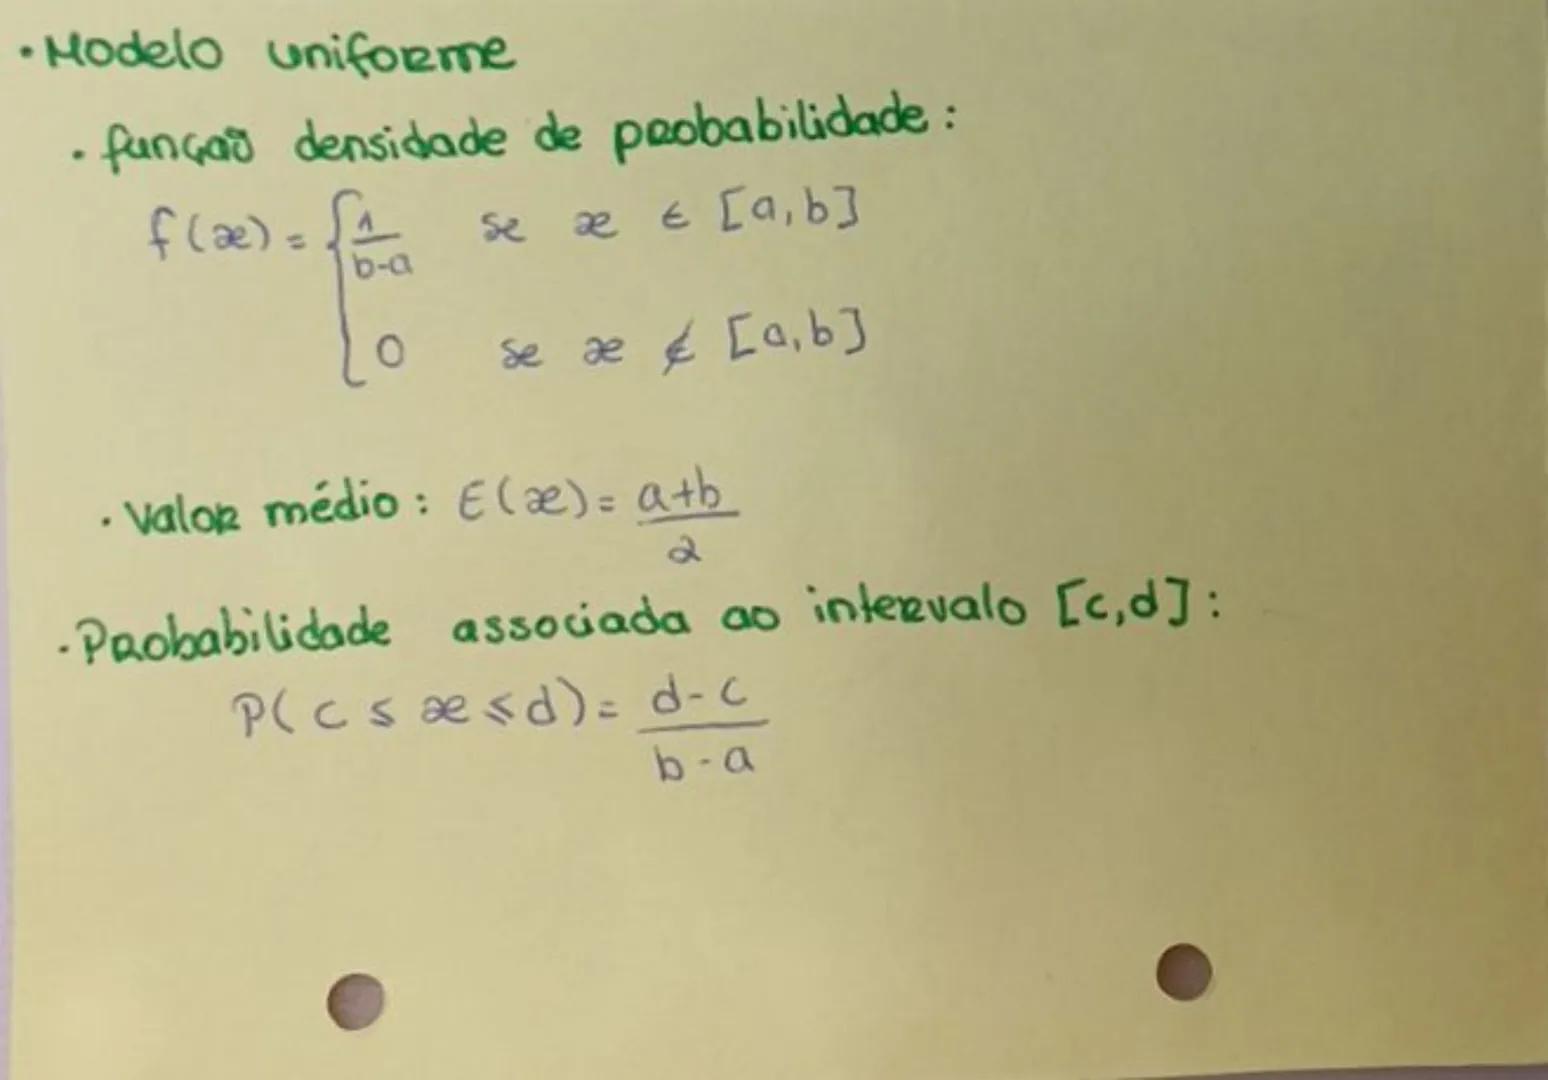 • Modelo uniforme
• função densidade de probabilidade:
f(x) = { 1/(b-a) se x ∈ [a,b]
0 se x ∉ [a,b]
• Valor médio: E(x) = (a+b)/2
• Probabilidade associada ao intervalo [c,d]:
P(c ≤ x ≤ d) = (d-c)/(b-a)